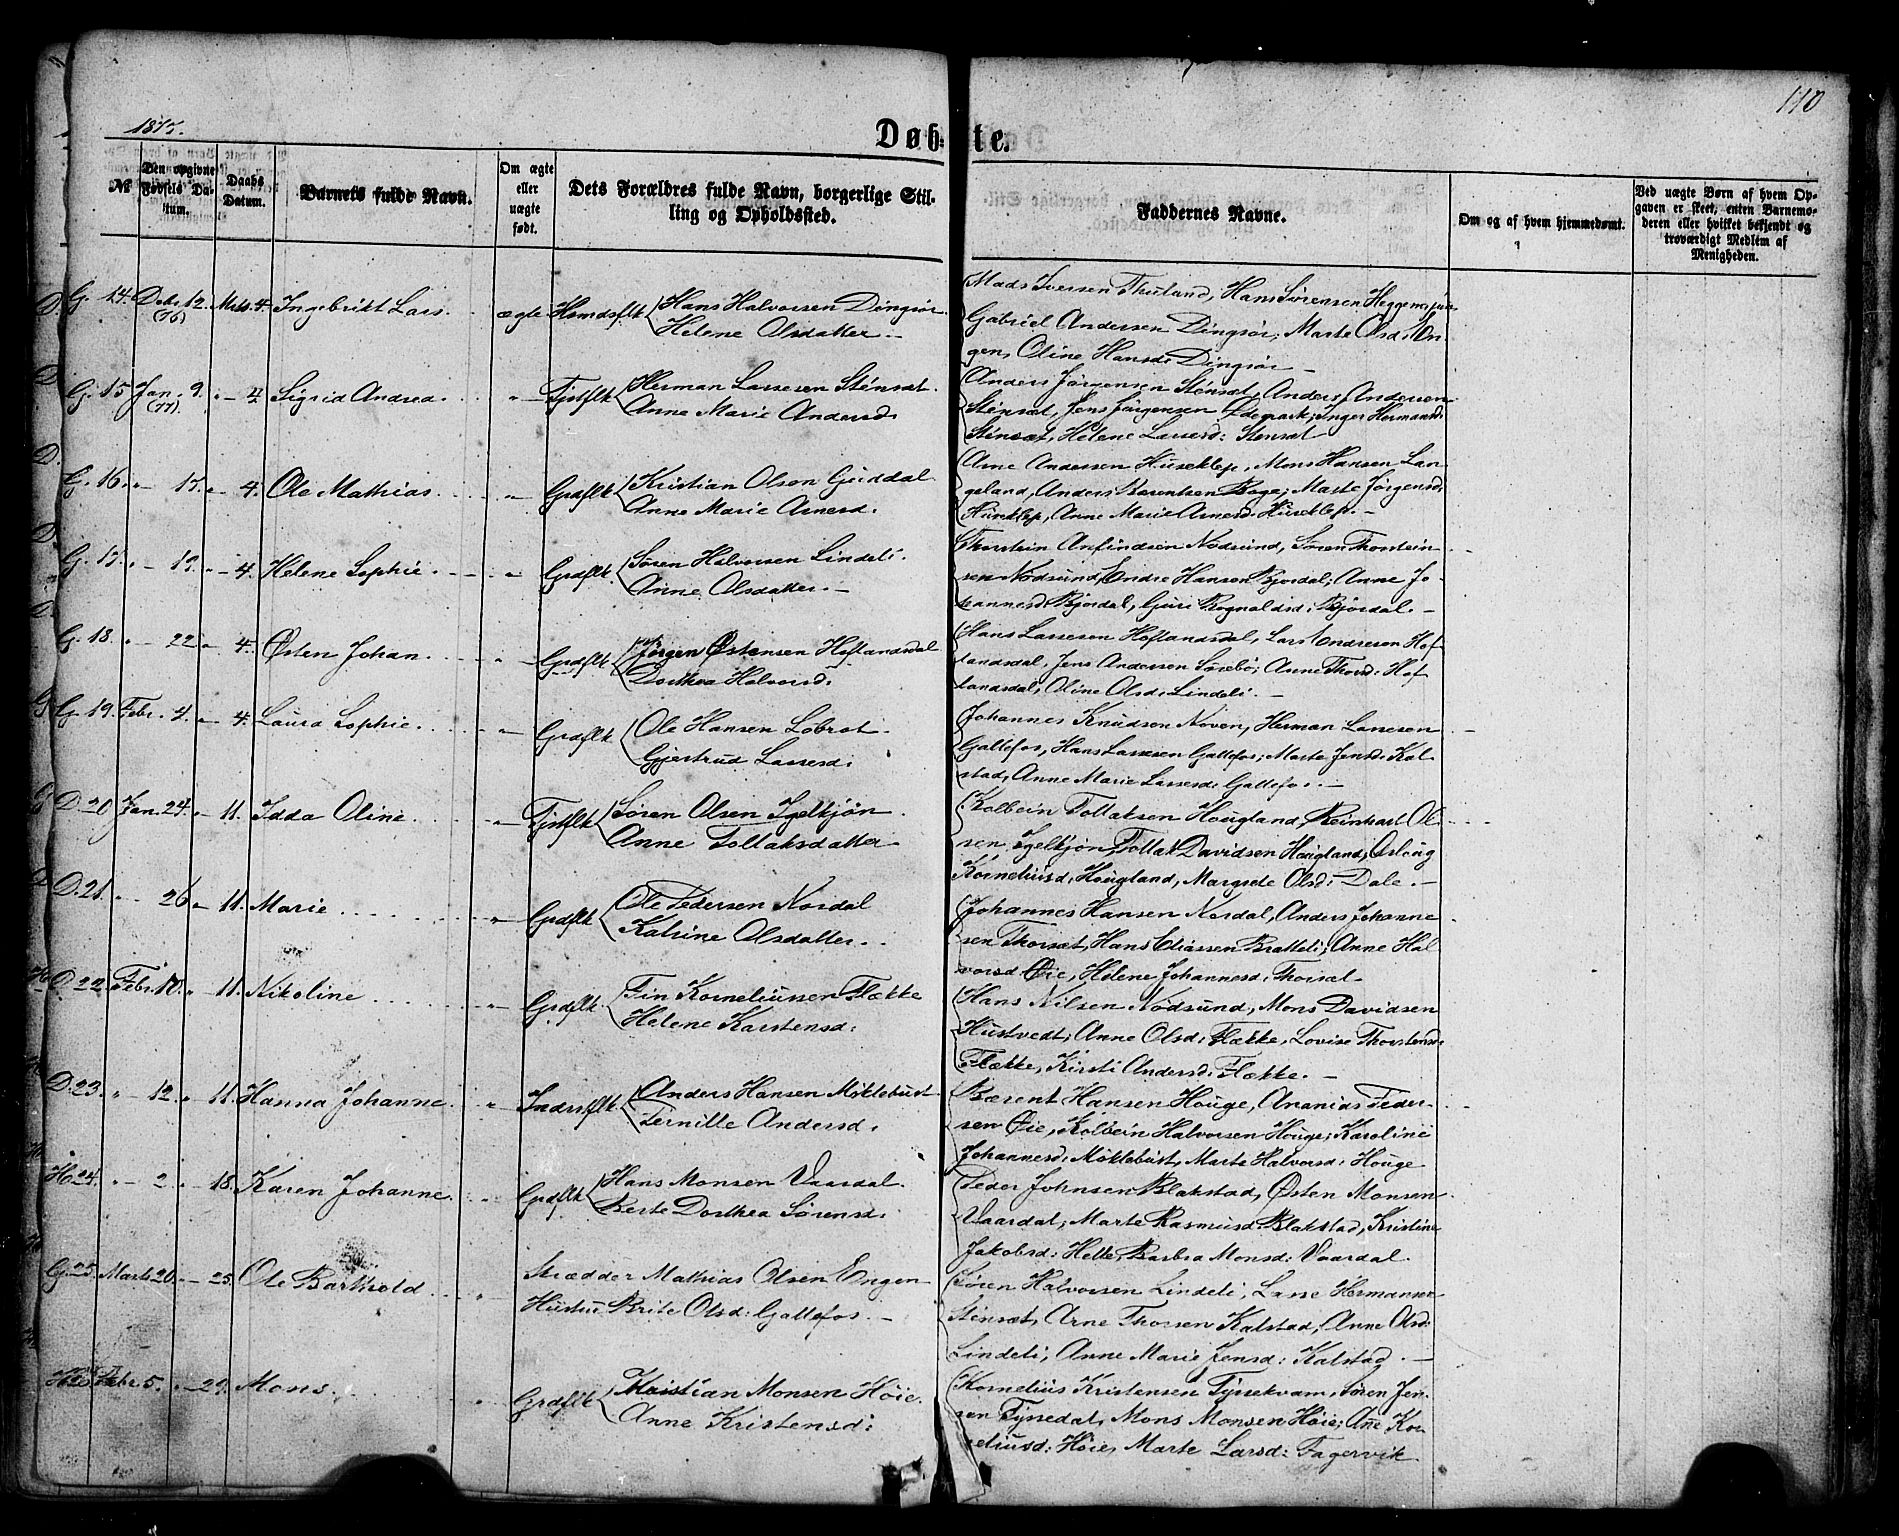 110
1877.
Døbte.
№
Den opgivne Fødsels Datum.
Daabs Datum.
Barnets fulde Navn.
Om ægte eller uægte født.
Dets Forældres fulde Navn, borgerlige Stilling og Opholdssted.
Faddernes Navne.
Om og af hvem hjemmedøbt.
Ved uægte Børn af hvem Opgaven er skeet, enten Barnemoderen eller hvilket bekjendt og troværdigt Medlem af Menigheden.
G. 14. Debr. 12. (76) Mts. 4. Ingebrikt Lars. ægte Hsmdsflk Hans Halvorsen Dingsør.
Helene Olsdatter.
Mads Iversen Thuland, Hans Sørensen
Gabriel Andersen Dingsør; Marte Olsd: En-
gen, Oline Hansd: Dingsør
G. 15 Jan. 9. (77). " 4. Sigrid Andrea. " Tjstflk Herman Lassesen Stensæt.
Anne Marie Andersd.
Anders Jørgensen Stensæt, Anders Andersen
Stensæt, Jens Jørgensen Ødegaard; Inger Hermansd:
Stensæt, Helene Lassesd: Stensæt
G. 16. " 17. " 4. Ole Mathias. " Grdflk Kristian Olsen Guddal
Anne Marie Arnesd.
Arne Andersen Huseklep, Mons Hansen Lan-
geland, Anders Berentsen Boge; Marte Jørgensd:
Huseklep, Anne Marie Arnesd: Huseklep.
G. 17. " 19. " 4. Helene Sophie. " Grdflk Søren Halvorsen Lindeli.
Anne Olsdatter.
Thorstein Anfindsen Nødsund, Søren Thorstein-
sen Nødsund, Endre Hansen Bjordal; Anne Jo-
hannesd: Bjordal, Guri Rognaldsd: Bjordal.
G. 18. " 22 " 4. Østen Johan. " Grdflk Jørgen Østensen Hoflandsdal
Dorthea Halvorsd.
Hans Lassesen Hoflandsdal, Lars Andresen Hof-
landsdal, Jens Andersen Sørebø; Anne Thorsd: Hof-
landsdal, Oline Olsd: Lindeli.
G. 19. Febr. 4. " 4. Laura Sophie. " Grdflk Ole Hansen Løbrot.
Gjertrud Lassesd:
Johannes Knudsen Noven, Herman Lassesen
Gallefos, Hans Lassesen Gallefos; Marte Jensd: Kal-
stad, Anne Marie Lassesd: Gallefos.
D. 20 Jan. 24. " 11. Idda Oline. " Tjstflk Søren Olsen Igelkjøn.
Anne Tollaksdatter
Kolbein Tollaksen Hougland, Reinhart Ol-
sen Igelkjøn, Tollak Davidsen Hougland, Oslaug
Korneliusd: Hougland, Margrete Olsd: Dale.
D. 21. " 26 " 11. Marie " Grdflk Ole Pedersen Nordal
Katrine Olsdatter.
Johannes Hansen Nordal, Anders Johanne-
sen Thorsæt, Hans Eliassen Bratteli; Anne Hal-
vorsd. Øie, Helene Johannesd: Thorsæt
D. 22. Febr. 10. " 11. Nikoline " Grdflk Fin Korneliussen Flække
Helene Karstensd:
Hans Nilsen Nødsund, Mons Davidsen
Hustvedt; Anne Olsd: Flække, Lovise Thorstensd:
Flække, Kirsti Andersd: Flække.
D. 23. " 12. " 11. Hanna Johanne. " Inderstflk Anders Hansen Møklebust.
Pernille Andersd.
Bærent Hansen Houge, Ananias Peder-
sen Øie, Kolbein Halvorsen Houge; Karoline
Johannesd: Møklebust, Marte Halvorsd: Houge
H. 24. " 2 " 18. Karen Johanne. " Grdflk Hans Monsen Vaardal.
Berte Dorthea Sørensd:
Peder Johnsen Blakstad, Østen Monsen
Vaardal; Marte Rasmusd: Blakstad, Kristine
Jakobsd: Helle, Barbra Monsd: Vaardal.
G. 25. Marts 20. " 25. Ole Barthold " Skrædder Mathias Olsen Engen
Hustru Brite Olsd: Gallefos.
Søren Halvorsen Lindeli, Lasse Hermansen
Stensæt, Arne Thorsen Kalstad; Anne Olsd:
Lindeli, Anne Marie Jensd: Kalstad.
H. 26 Febr. 5. " 29. Mons. " Grdflk Kristian Monsen Høie.
Anne Kristensd:
Kornelius Kristensen Tyssekvam, Søren Jen-
sen Tyssedal, Mons Monsen Høie; Ane Kor-
neliusd: Høie, Marte Larsd: Fagervik.